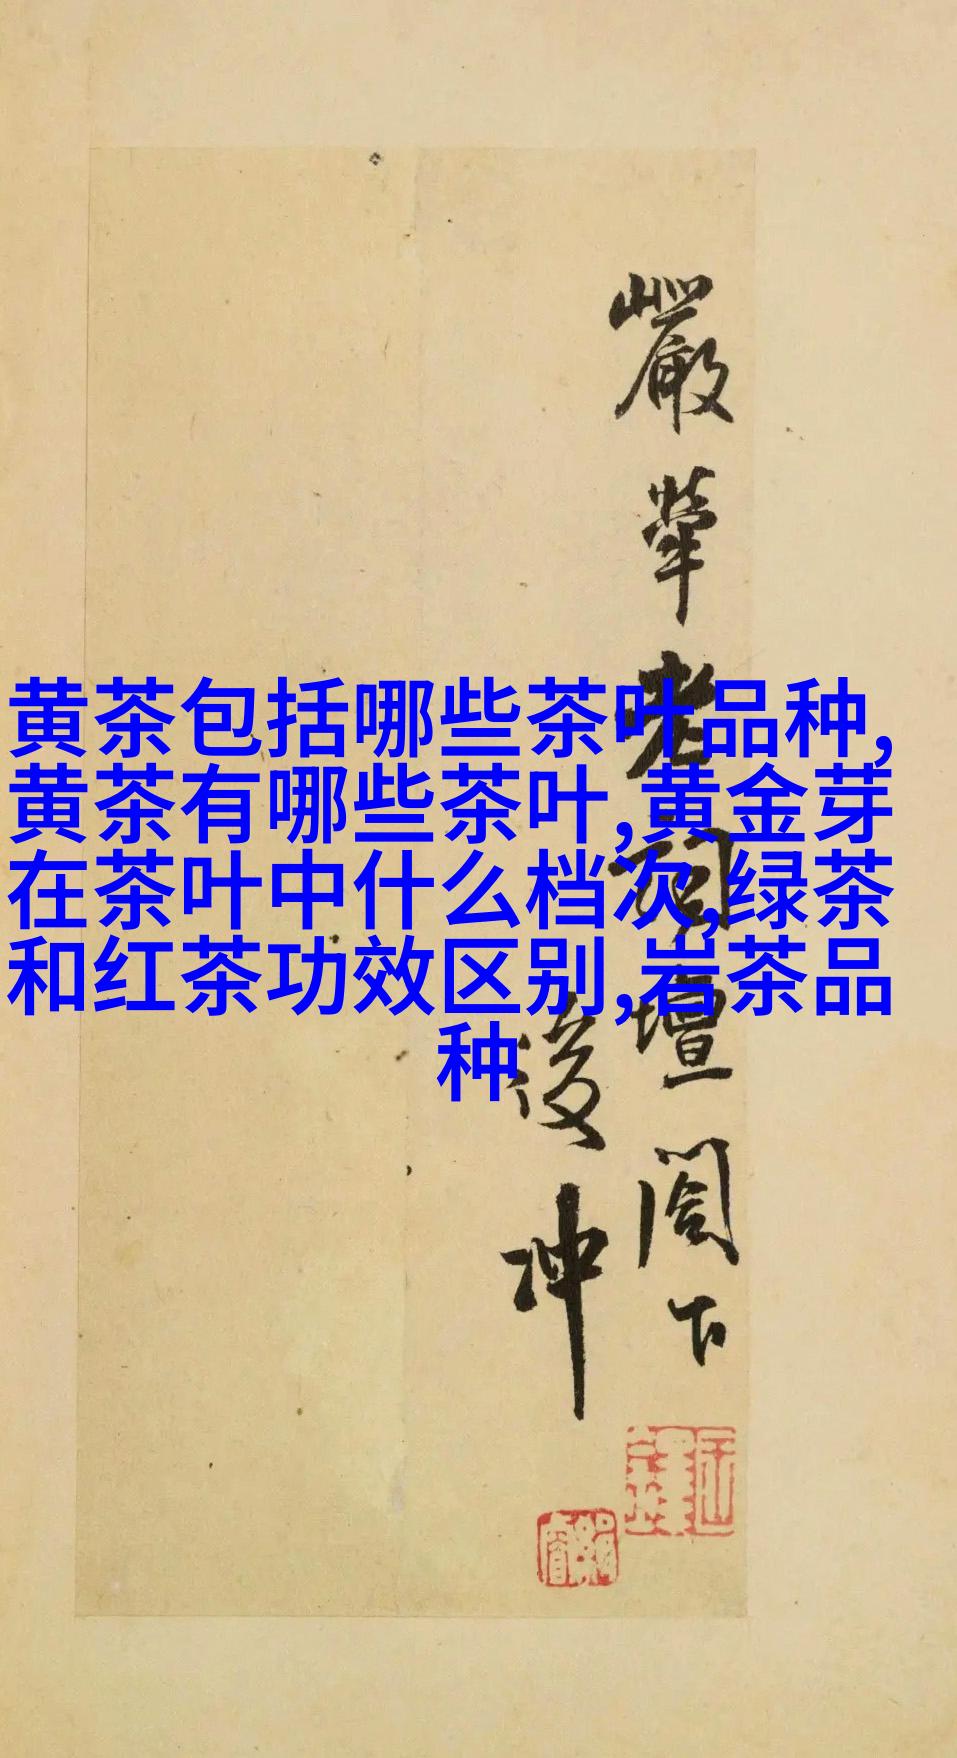 黄茶包括哪些茶叶品种,
黄茶有哪些茶叶,黄金芽
在茶叶中什么档次,绿茶
和红茶功效区别,岩茶品
种
嚴犖老詞壇閣下
後冲